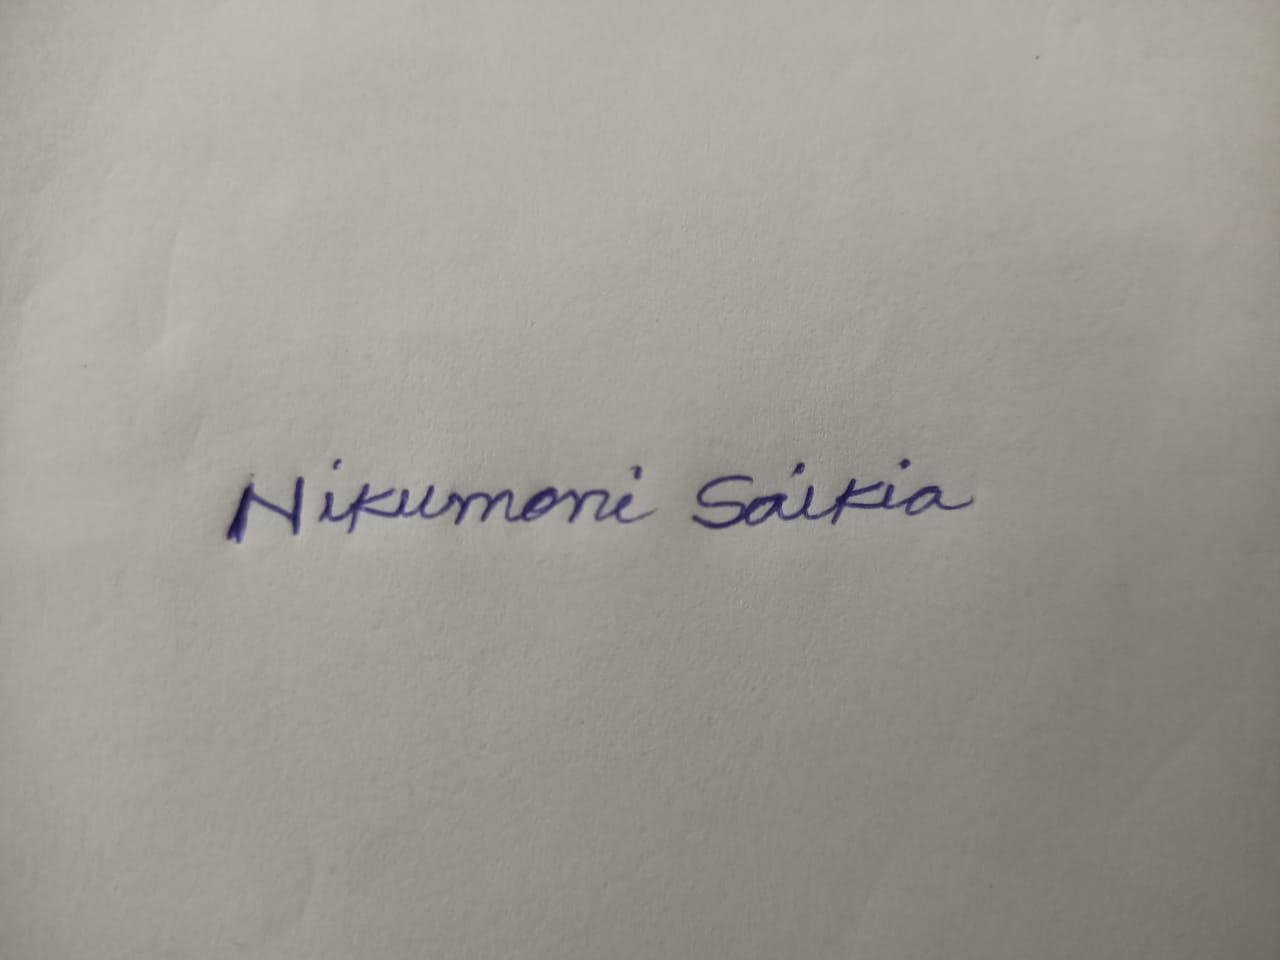 Nikumoni Saikia